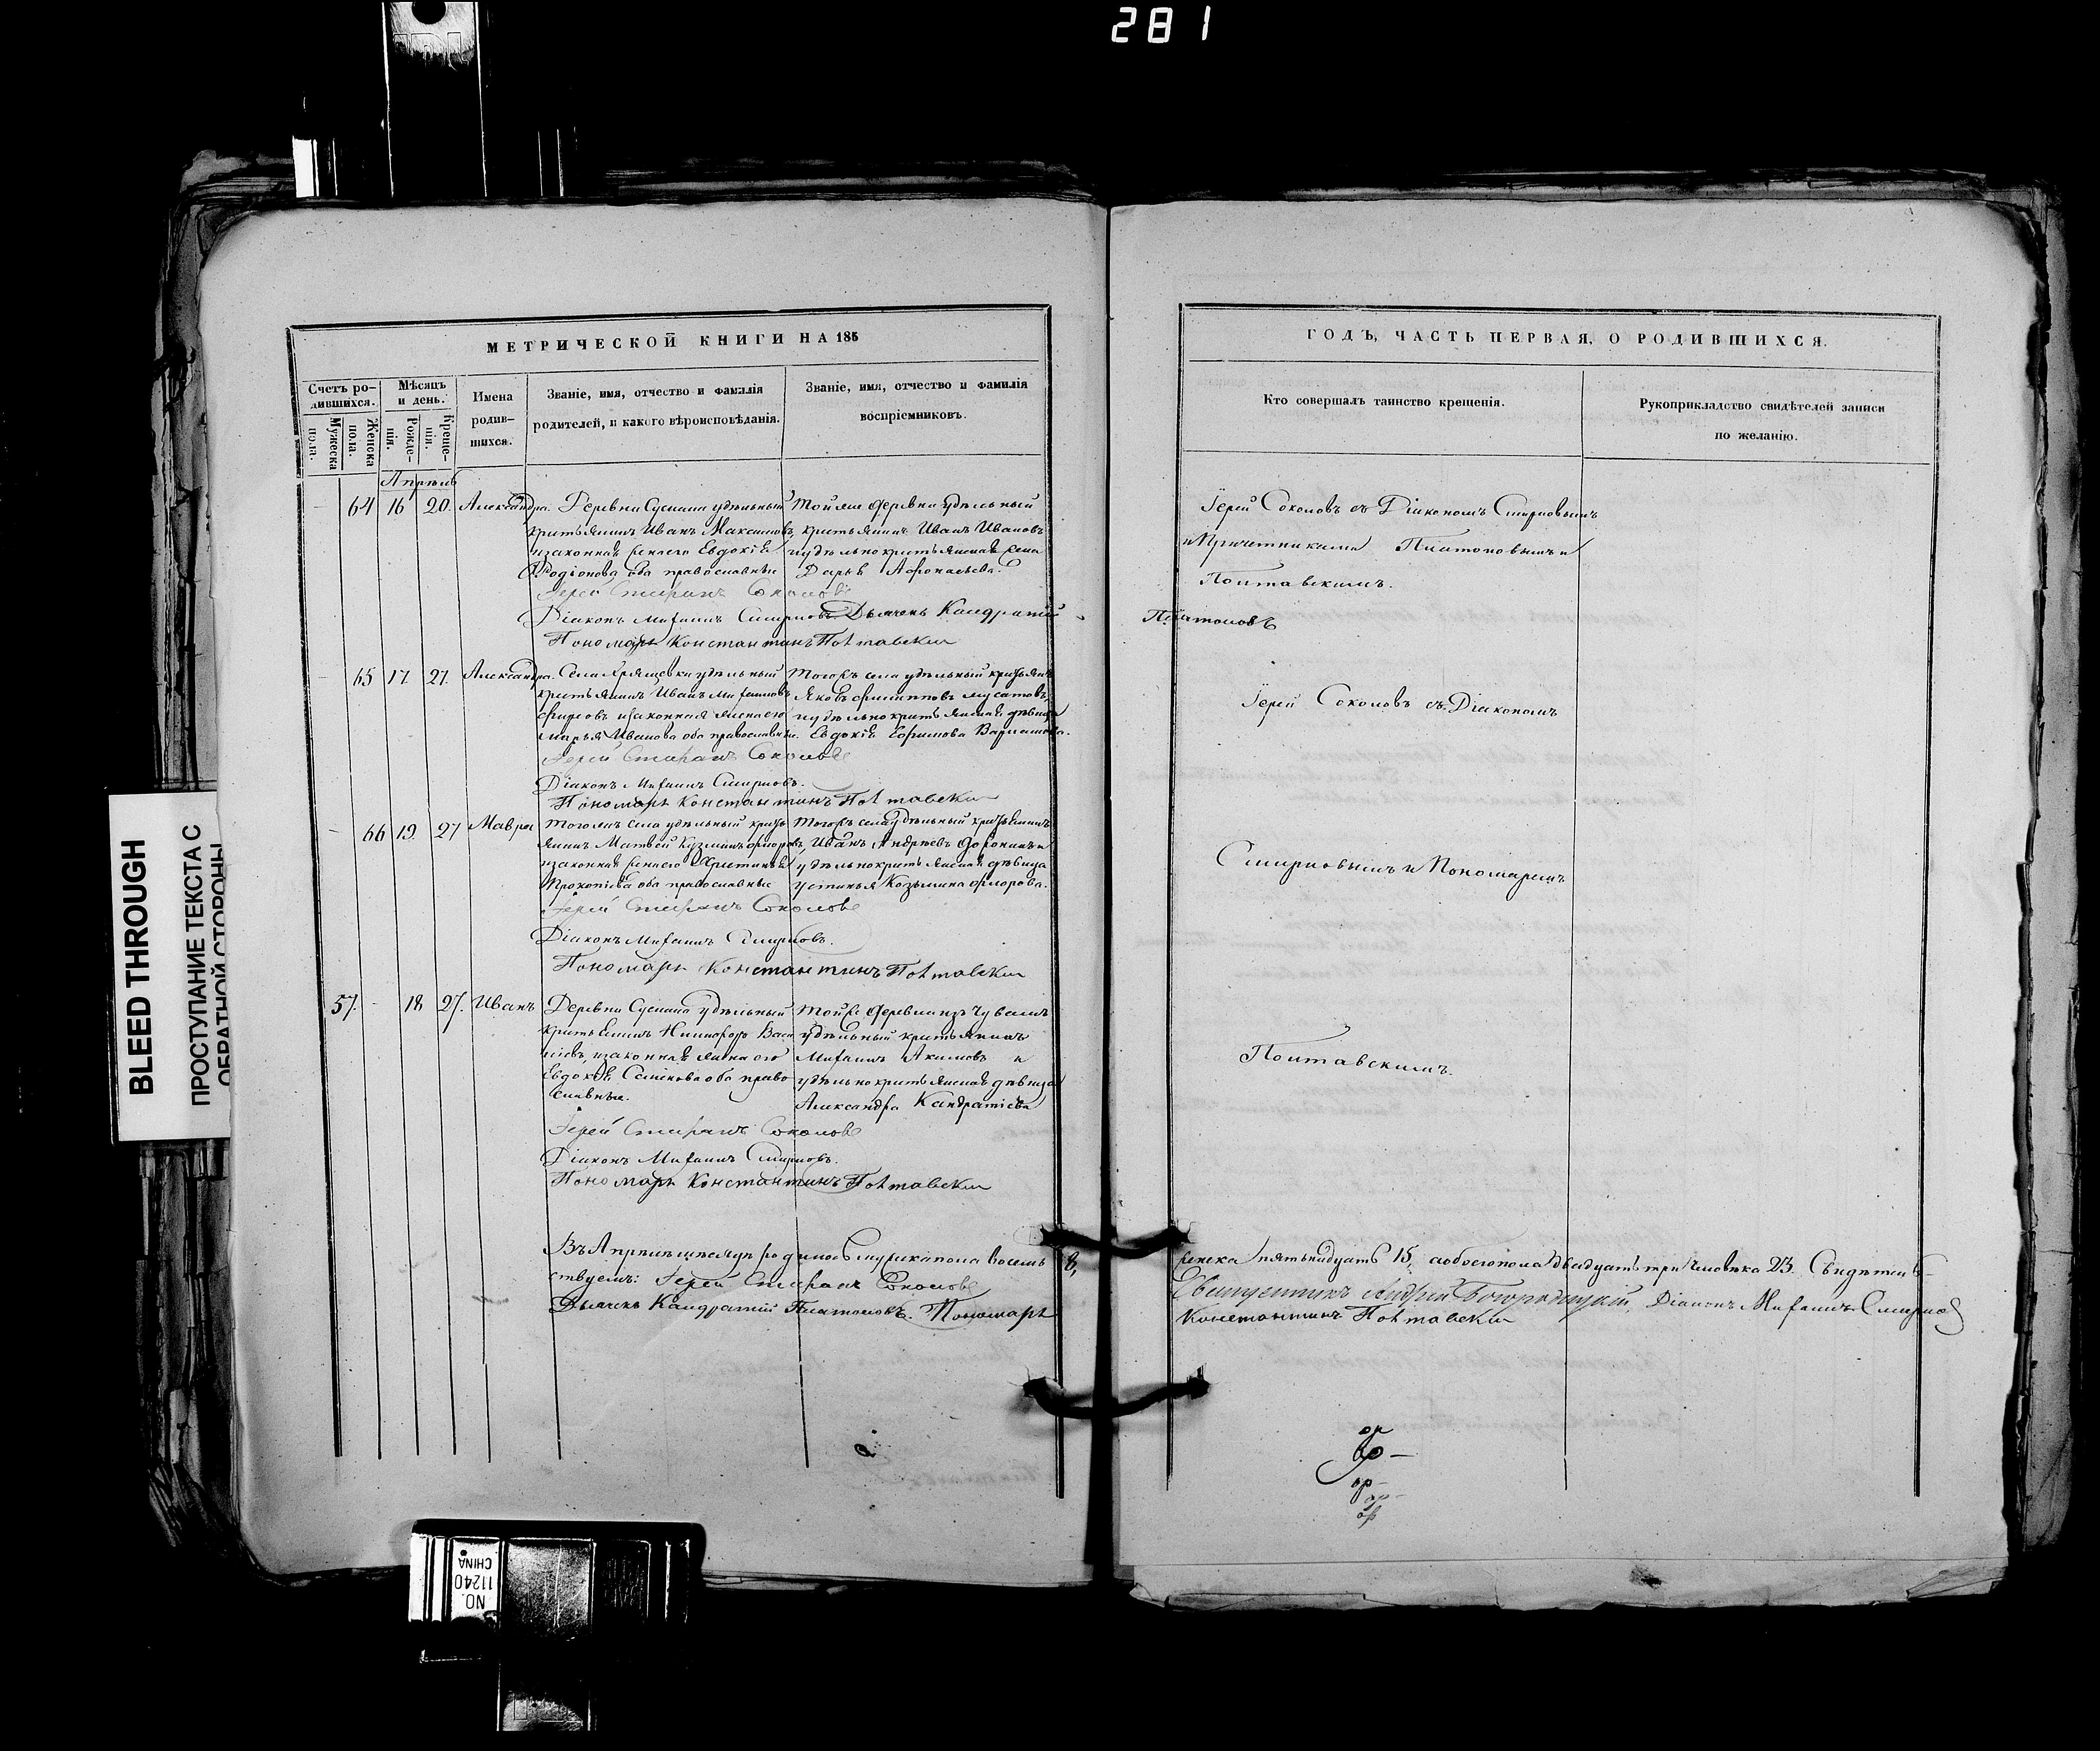 281
МЕТРИЧЕСКОЙ КНИГИ НА 185
Счетъ ро-
дившихся.
Мужеска
пола.
Женска
пола.
Мѣсяцъ
и день.
Рожде-
нія.
Креще-
нія.
Имена
родив-
шихся.
Званіе, имя, отчество и фамилія
родителей, и какого вѣроисповѣданія.
Званіе, имя, отчество и фамилія
воспріемниковъ.
Апрѣль
64 16 20. Александра.
Деревни Сускана удѣльный
крестьянинъ Иванъ Максимовъ,
изаконная жена его Евдокія
Родіонова оба православные
Той же деревни удѣльный
крестьянинъ Иванъ Ивановъ
Дарья Афонасьева.
Іерей Стефанъ Соколовъ
Діаконъ Михаилъ Смирновъ. Дьячекъ Кандратій
Пономарь Константинъ Полтавскій
65 17. 27. Александра.
Села Хрящевки удѣльный
крестьянинъ Иванъ Михаиловъ
изаконная жена его
Марья Иванова оба православные.
Тогожъ села удѣльный
Яковъ Филипповъ Мусатовъ,
иудѣльно крестьянская дѣвица
Евдокія Ефимова Варламова.
Іерей Стефанъ Соколовъ
Діаконъ Михаилъ Смирновъ.
Пономарь Константинъ Полтавскій
66 19. 27 Мавра
Тогожъ села удѣльный кресть
янинъ Матвей Кузминъ Фроловъ,
изаконная жена его Христинья
Прокопіева оба православные
Тогожъ села удѣльный крестьянинъ
Иванъ Андреевъ и
удѣльно крестьянская дѣвица
Устинья Козьмина Фролова.
Іерей Стефанъ Соколовъ
Діаконъ Михаилъ Смирновъ.
Пономарь Константинъ Полтавскій
57. - 18 27. Иванъ
Деревни Сускана удѣльный
крестьянинъ Никифоръ Васи
ліевъ, изаконная жена его
Евдокія Семенова оба право
славные.
Той же деревни изъ Чувашъ
удѣльный крестьянинъ
Михаилъ Акимовъ и
удѣльно крестьянская дѣвица
Александра Кандратіева
Іерей Стефанъ Соколовъ
Діаконъ Михаилъ Смирновъ.
Пономарь Константинъ Полтавскій
ВъАпрѣлѣ мѣсяцѣ родилось мужеска пола восемь 8,
ствуемъ: Іерей Стефанъ Соколовъ
Дьячекъ Кандратій Платоновъ. Пономарь
ГОДЪ, ЧАСТЬ ПЕРВАЯ, О РОДИВШИХСЯ.
Кто совершалъ таинство крещенія.
Рукоприкладство свидѣтелей записи
по желанію.
Іерей Соколовъ съ Діакономъ Смирновымъ
и Причетниками Платоновымъ и
Полтавскимъ.
Платоновъ
Іерей Соколовъ съ Діакономъ
Смирновымъ и Пономаремъ
Полтавскимъ.
женска пятьнадцать 15, аобоегопола двадцать три человѣка 23. Свидѣтель-
Священникъ Андрей Богородицкій, Діаконъ Михаилъ Смирнов
Константинъ Полтавскій
BLEED THROUGH
ПРОСТУПАНИЕ ТЕКСТА С
ОБРАТНОЙ СТОРОНЫ
NO. 11240
CHINA